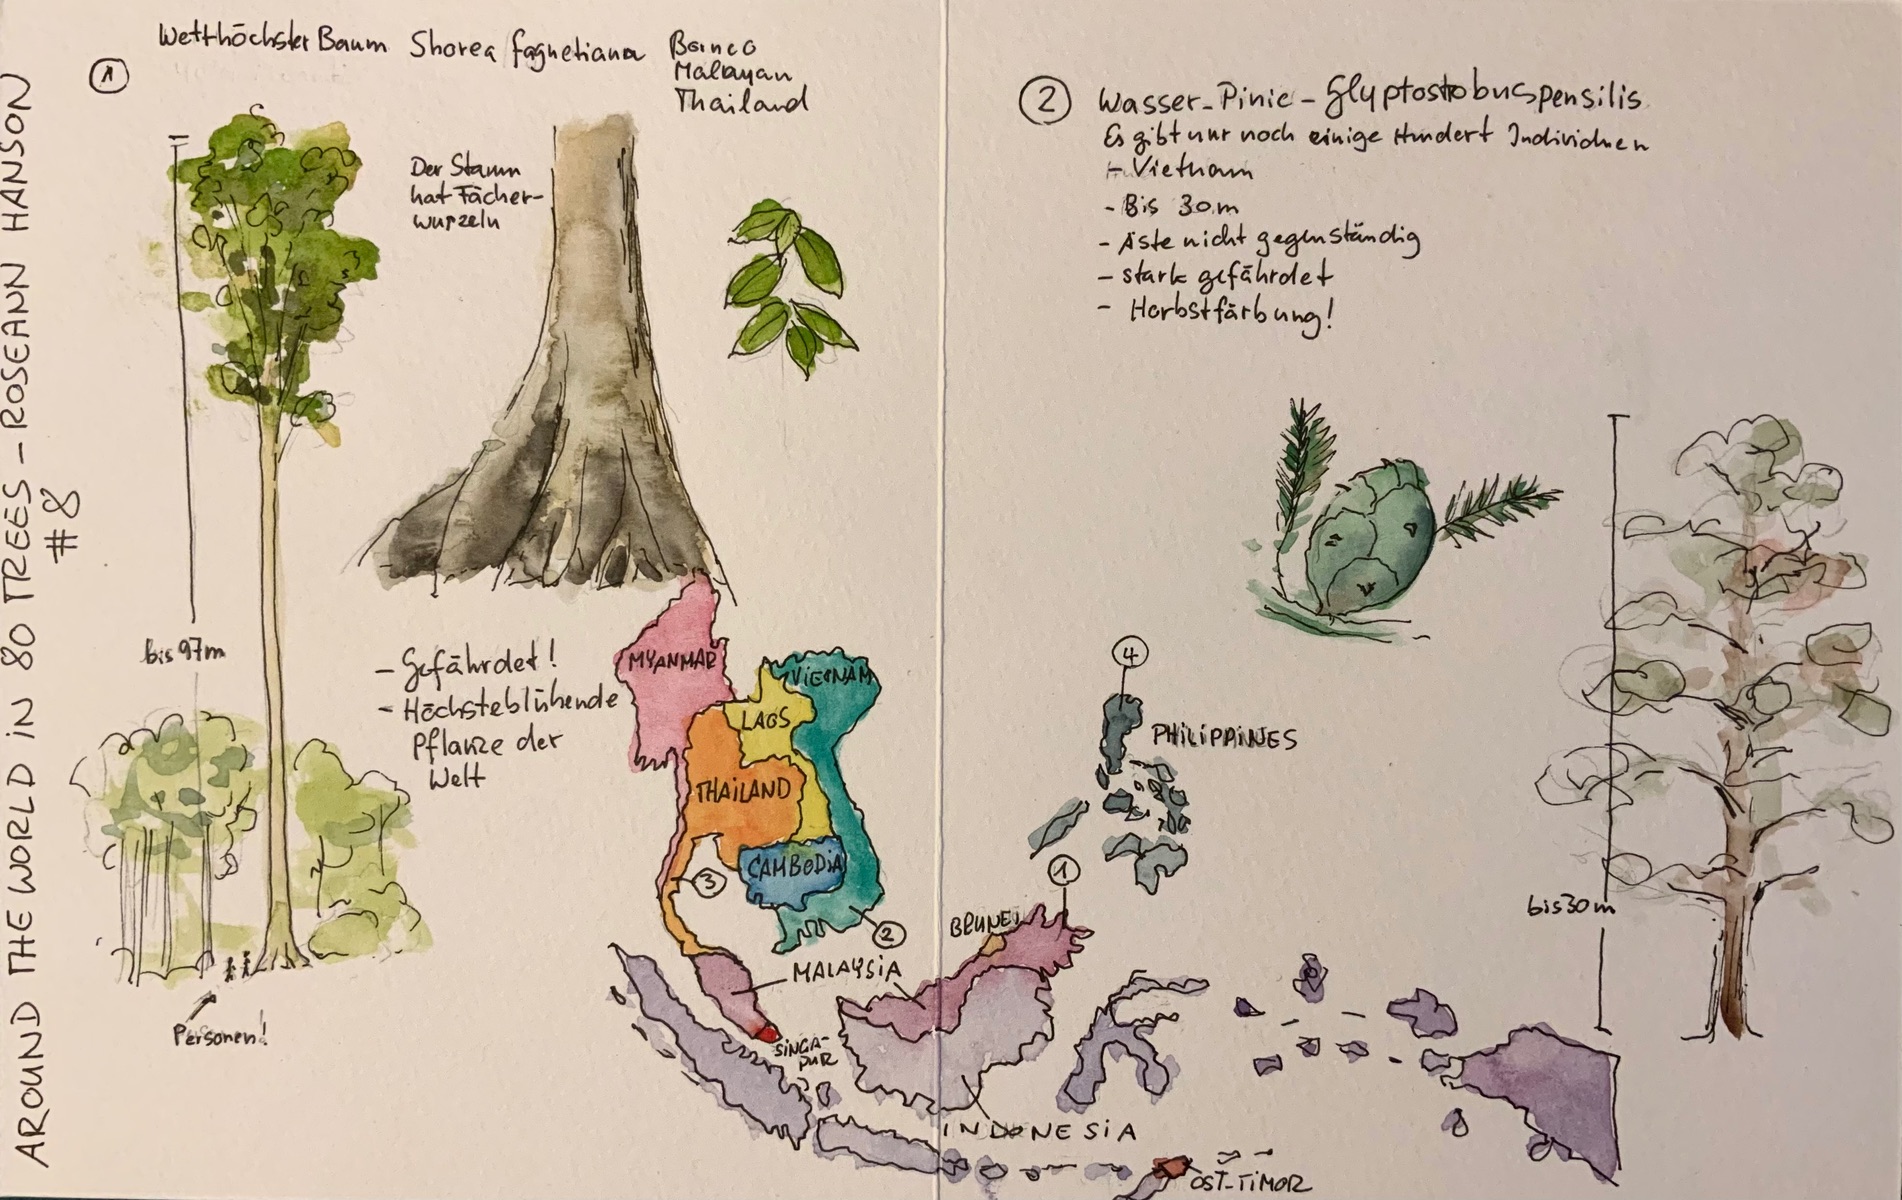 AROUND THE WORLD IN 80 TREES - ROSEANN HANSON
#8
1
Welthöchster Baum Shorea faguetiana
Borneo
Malayan
Thailand
Der Stamm
hat Fächer-
wurzeln
bis 97m
- Gefährdet!
- Höchsteblühende
Pflanze der
Welt
Personen!
2 Wasser-Pinie - Glyptostrobus pensilis
Es gibt nur noch einige Hundert Individuen
- Vietnam
- Bis 30m
- Äste nicht gegenständig
- stark gefährdet
- Herbstfärbung!
bis 30m
MYANMAR
VIETNAM
LAOS
THAILAND
CAMBODIA
3
2
4
PHILIPPINES
1
BRUNEI
MALAYSIA
SINGA-
PUR
INDONESIA
OST-TIMOR